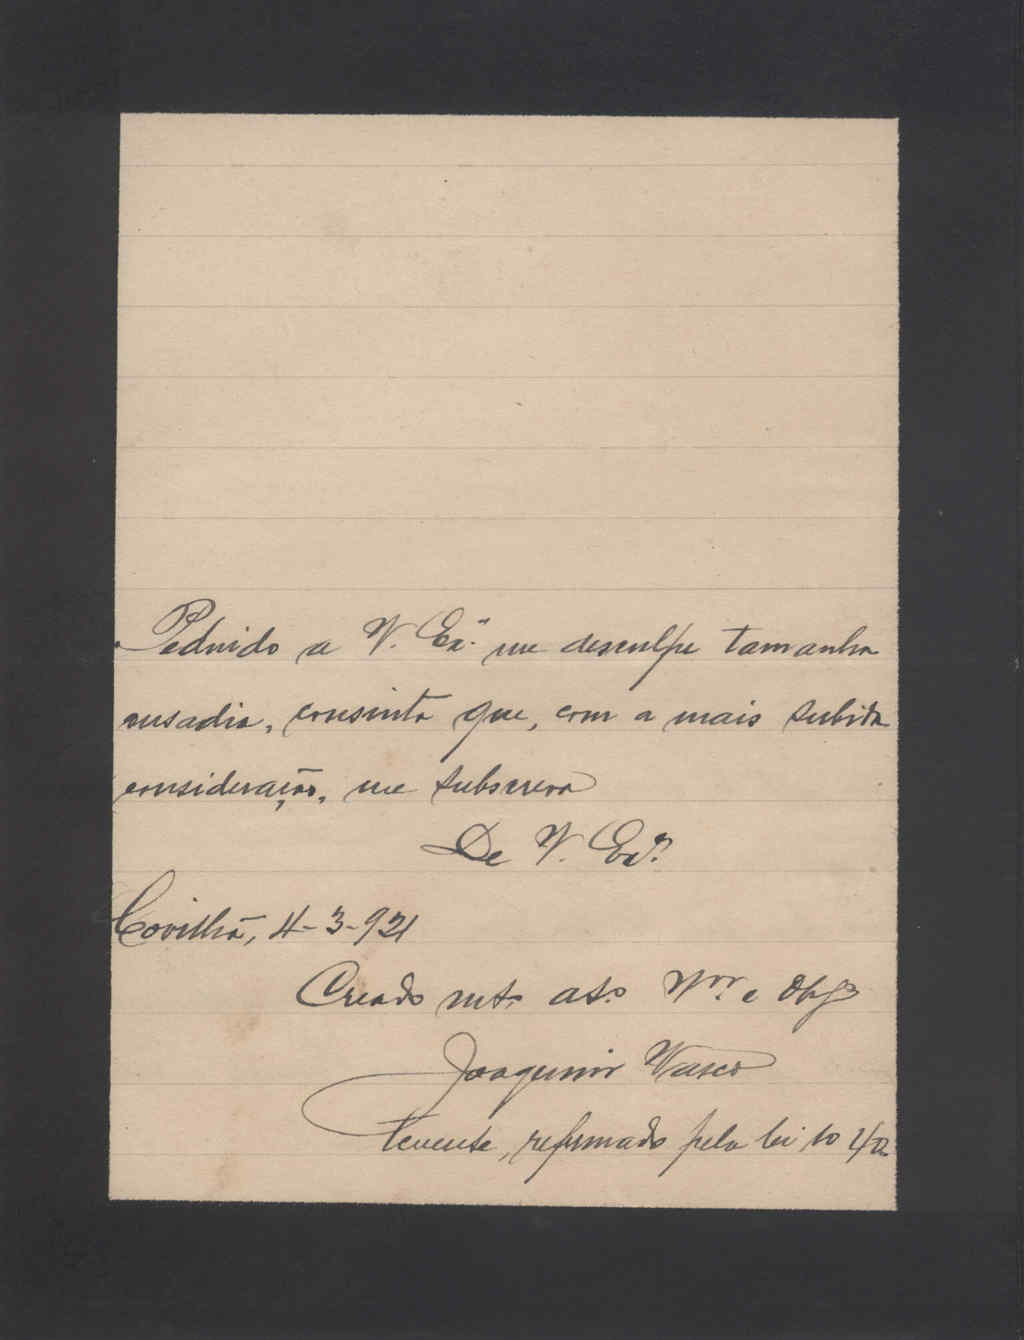 Pedindo a V. Exª. me desculpe tamanha
ousadia, consinta que, com a mais subida
consideração, me subscreva
De V. Exª.
Covilhã, 4-3-921
Creado mtº atº Vºr e Obgº
Joaquim Vasco
tenente, reformado pela lei